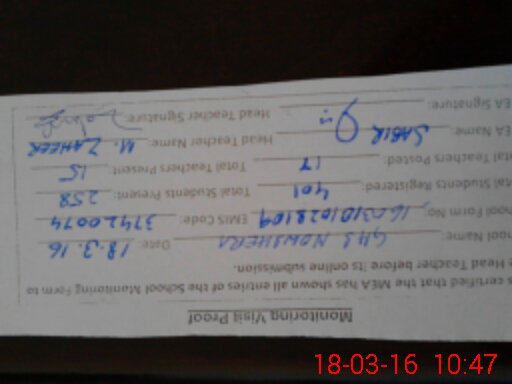 Monitoring Visit Proof
s certified that the MEA has shown all entries of the School Monitoring Form to
e Head Teacher before its online submission.
ool Name: GHS NOWSHERA Date: 18.3.16
hool Form No. EMIS Code: 37420074
al Students Registered: 401 Total Students Present: 258
tal Teachers Posted: 17 Total Teachers Present: 15
EA Name: SABIR Head Teacher Name: M. ZAHEER
EA Signature: Head Teacher Signature:
18-03-16 10:47